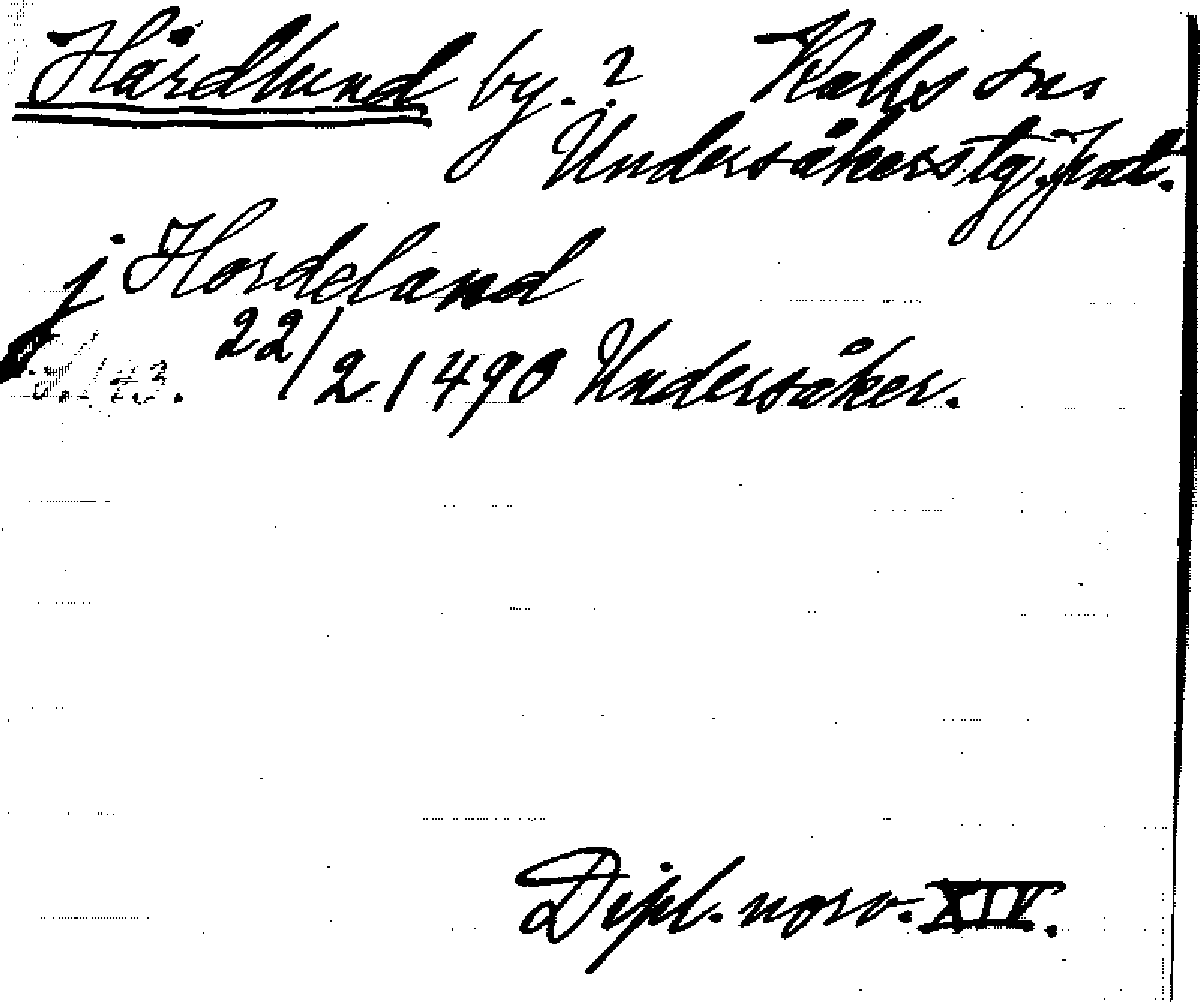 Hårdlund by.? Kalls sn.
Undersåkers tg. Jmt.
j Hordeland
22/2 1490 Undersåker.
Dipl. norv. XIV.